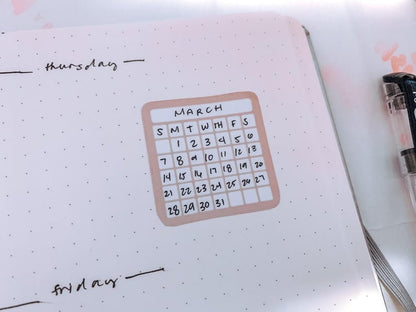 thursday
MARCH
S M T W T F S
1 2 3 4 5 6
7 8 9 10 11 12 13
14 15 16 17 18 19 20
21 22 23 24 25 26 27
28 29 30 31
friday